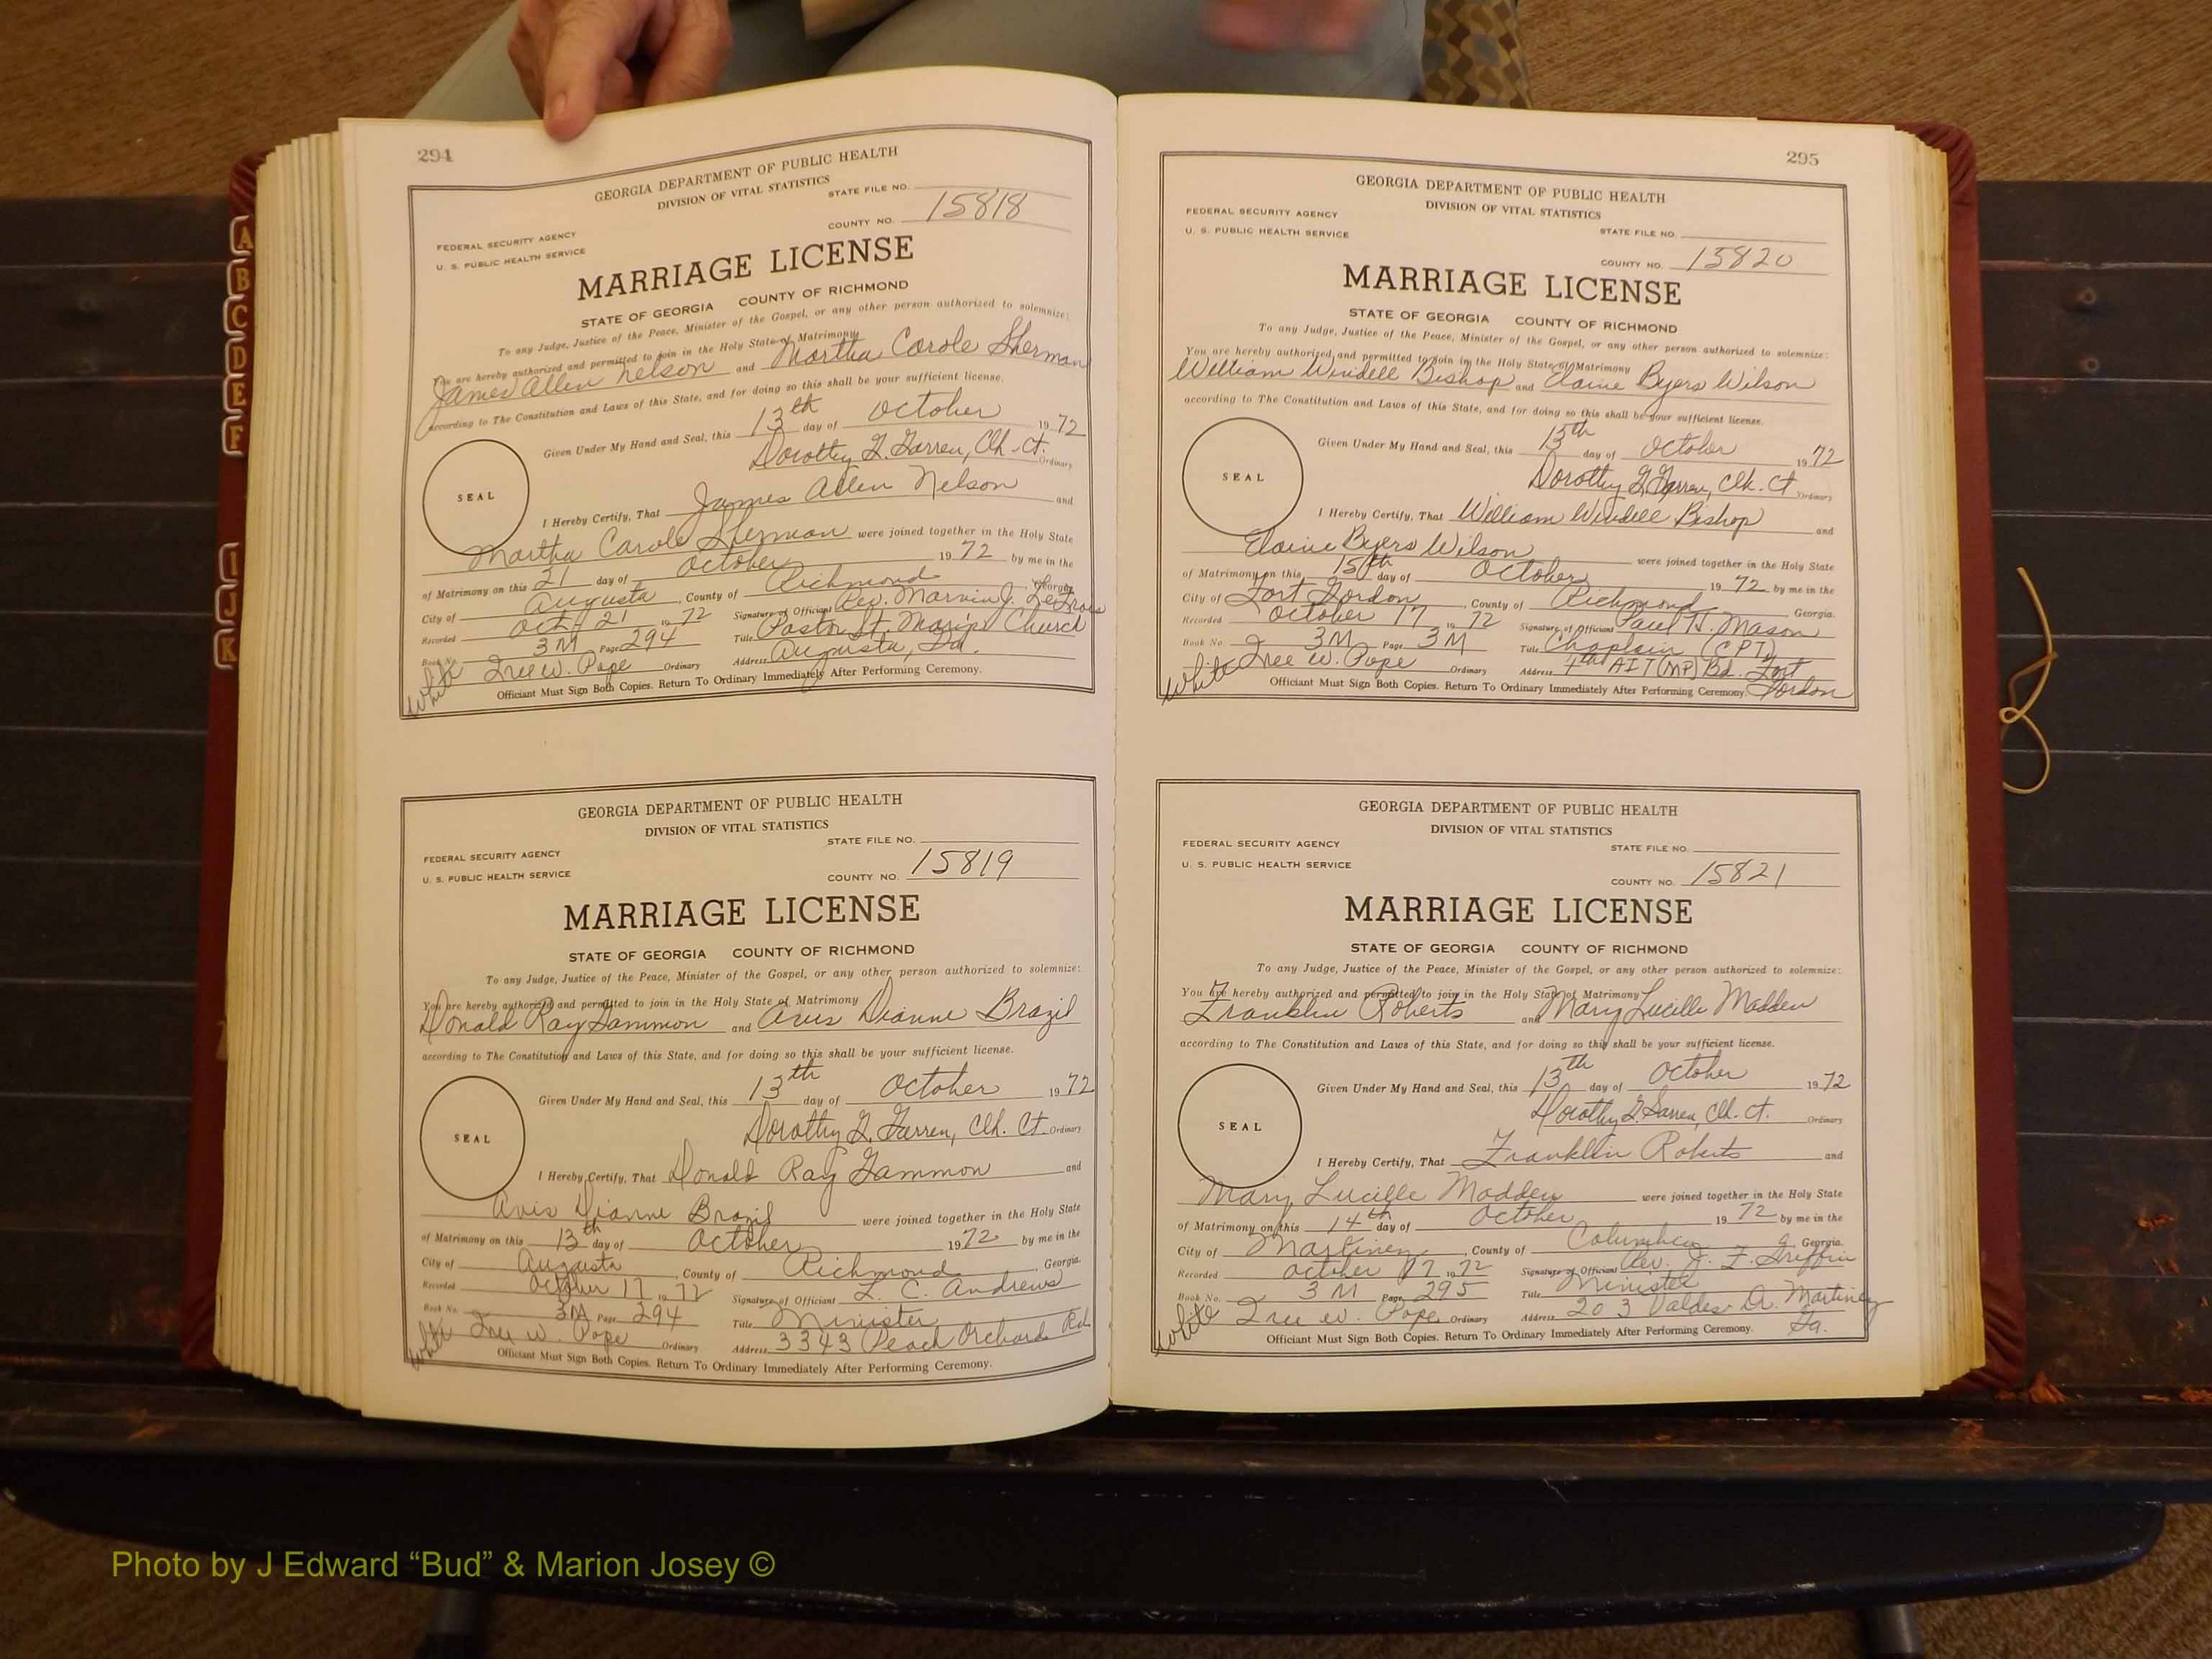 294
GEORGIA DEPARTMENT OF PUBLIC HEALTH
DIVISION OF VITAL STATISTICS
STATE FILE NO.
COUNTY NO. 15818
FEDERAL SECURITY AGENCY
U. S. PUBLIC HEALTH SERVICE
MARRIAGE LICENSE
STATE OF GEORGIA COUNTY OF RICHMOND
To any Judge, Justice of the Peace, Minister of the Gospel, or any other person authorized to solemnize:
You are hereby authorized and permitted to join in the Holy State of Matrimony
James Allen Nelson and Martha Carole Sherman
according to The Constitution and Laws of this State, and for doing so this shall be your sufficient license.
Given Under My Hand and Seal, this 13th day of October 1972
Dorothy G. Garren, Clk. Ct. Ordinary
SEAL
I Hereby Certify, That James Allen Nelson and
Martha Carole Sherman were joined together in the Holy State
of Matrimony on this 21 day of October 1972 by me in the
City of Augusta, County of Richmond, Georgia.
Recorded Oct. 21 1972 Signature of Officiant Rev. Marvin J.
Book No. 3M Page 294 Title Pastor St. Mary's Church
White W. Pope Ordinary Address Augusta, Ga.
Officiant Must Sign Both Copies. Return To Ordinary Immediately After Performing Ceremony.
GEORGIA DEPARTMENT OF PUBLIC HEALTH
DIVISION OF VITAL STATISTICS
STATE FILE NO.
FEDERAL SECURITY AGENCY
U. S. PUBLIC HEALTH SERVICE
COUNTY NO. 15819
MARRIAGE LICENSE
STATE OF GEORGIA COUNTY OF RICHMOND
To any Judge, Justice of the Peace, Minister of the Gospel, or any other person authorized to solemnize:
You are hereby authorized and permitted to join in the Holy State of Matrimony
Donald Ray Gammon and Avis Dianne Brazil
according to The Constitution and Laws of this State, and for doing so this shall be your sufficient license.
Given Under My Hand and Seal, this 13th day of October 1972
Dorothy G. Garren, Clk. Ct. Ordinary
SEAL
I Hereby Certify, That Donald Ray Gammon and
Avis Dianne Brazil were joined together in the Holy State
of Matrimony on this 13th day of October 1972 by me in the
City of Augusta, County of Richmond, Georgia.
Recorded October 17 1972 Signature of Officiant L. C. Andrews
Book No. 3M Page 294 Title Minister
White W. Pope Ordinary Address 3343 Peach Orchard Rd.
Officiant Must Sign Both Copies. Return To Ordinary Immediately After Performing Ceremony.
295
GEORGIA DEPARTMENT OF PUBLIC HEALTH
DIVISION OF VITAL STATISTICS
FEDERAL SECURITY AGENCY
U. S. PUBLIC HEALTH SERVICE
STATE FILE NO.
COUNTY NO. 15820
MARRIAGE LICENSE
STATE OF GEORGIA COUNTY OF RICHMOND
To any Judge, Justice of the Peace, Minister of the Gospel, or any other person authorized to solemnize:
You are hereby authorized and permitted to join in the Holy State of Matrimony
William Windell Bishop and Elaine Byers Wilson
according to The Constitution and Laws of this State, and for doing so this shall be your sufficient license.
Given Under My Hand and Seal, this 13th day of October 1972
Dorothy G. Garren, Clk. Ct. Ordinary
SEAL
I Hereby Certify, That William Windell Bishop and
Elaine Byers Wilson were joined together in the Holy State
of Matrimony on this 15th day of October 1972 by me in the
City of Fort Gordon, County of Richmond Georgia.
Recorded October 17 1972 Signature of Officiant Paul H. Mason
Book No 3M Page 3M Title Chaplain (CPT)
White W. Pope Ordinary Address 4th AIT (MP) Bd. Fort
Officiant Must Sign Both Copies. Return To Ordinary Immediately After Performing Ceremony. Gordon
GEORGIA DEPARTMENT OF PUBLIC HEALTH
DIVISION OF VITAL STATISTICS
FEDERAL SECURITY AGENCY
U. S. PUBLIC HEALTH SERVICE
STATE FILE NO.
COUNTY NO. 15821
MARRIAGE LICENSE
STATE OF GEORGIA COUNTY OF RICHMOND
To any Judge, Justice of the Peace, Minister of the Gospel, or any other person authorized to solemnize:
You are hereby authorized and permitted to join in the Holy State of Matrimony
Franklin Roberts and Mary Lucille Madden
according to The Constitution and Laws of this State, and for doing so this shall be your sufficient license.
Given Under My Hand and Seal, this 13th day of October 1972
Dorothy G. Garren, Clk. Ct. Ordinary
SEAL
I Hereby Certify, That Franklin Roberts and
Mary Lucille Madden were joined together in the Holy State
of Matrimony on this 14th day of October 1972 by me in the
City of Martinez, County of Columbia, Georgia.
Recorded October 17 1972 Signature of Officiant Rev. J. F. Griffin
Book No. 3M Page 295 Title Minister
White W. Pope Ordinary Address 203 Valdes Dr. Martinez
Ga.
Officiant Must Sign Both Copies. Return To Ordinary Immediately After Performing Ceremony.
A
B
C
D
E
F
I
J
K
Photo by J Edward “Bud” & Marion Josey ©